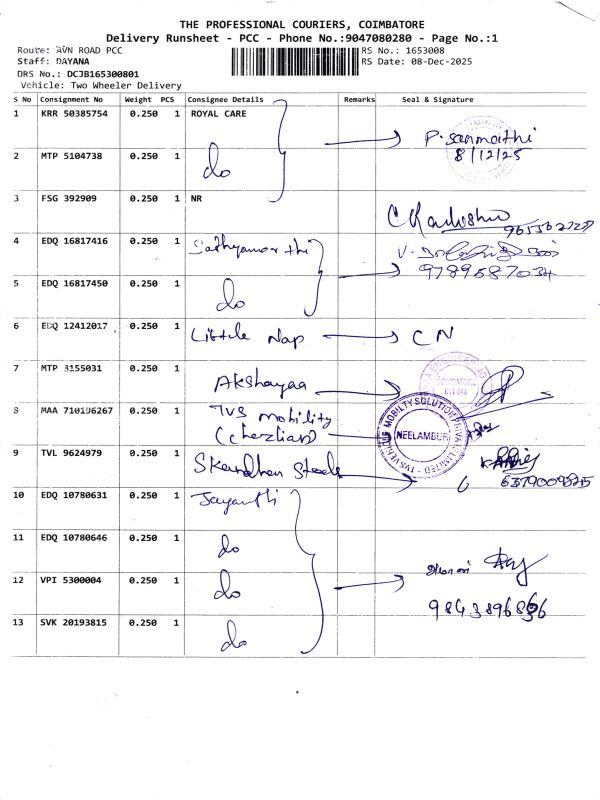 THE PROFESSIONAL COURIERS, COIMBATORE
Delivery Runsheet - PCC - Phone No.:9047080280 - Page No.:1
Route: AVN ROAD PCC RS No.: 1653008
Staff: DAYANA RS Date: 08-Dec-2025
DRS No.: DCJB165300801
Vehicle: Two Wheeler Delivery
S No Consignment No Weight PCS Consignee Details Remarks Seal & Signature
1 KRR 50385754 0.250 1 ROYAL CARE
P. Sanmathi
8/12/25
2 MTP 5104738 0.250 1 do
3 FSG 392909 0.250 1 NR
4 EDQ 16817416 0.250 1 Sathyamorthi
9789587034
5 EDQ 16817450 0.250 1 do
6 EDQ 12412017 0.250 1 Little Nap CN
7 MTP 3155031 0.250 1 Akshayaa
8 MAA 710196267 0.250 1 TVS mobility
(cherlian)
NEELAMBUR
9 TVL 9624979 0.250 1 Skandhan Steels
10 EDQ 10780631 0.250 1 Jayanthi
11 EDQ 10780646 0.250 1 do
12 VPI 5300004 0.250 1 do
13 SVK 20193815 0.250 1 do